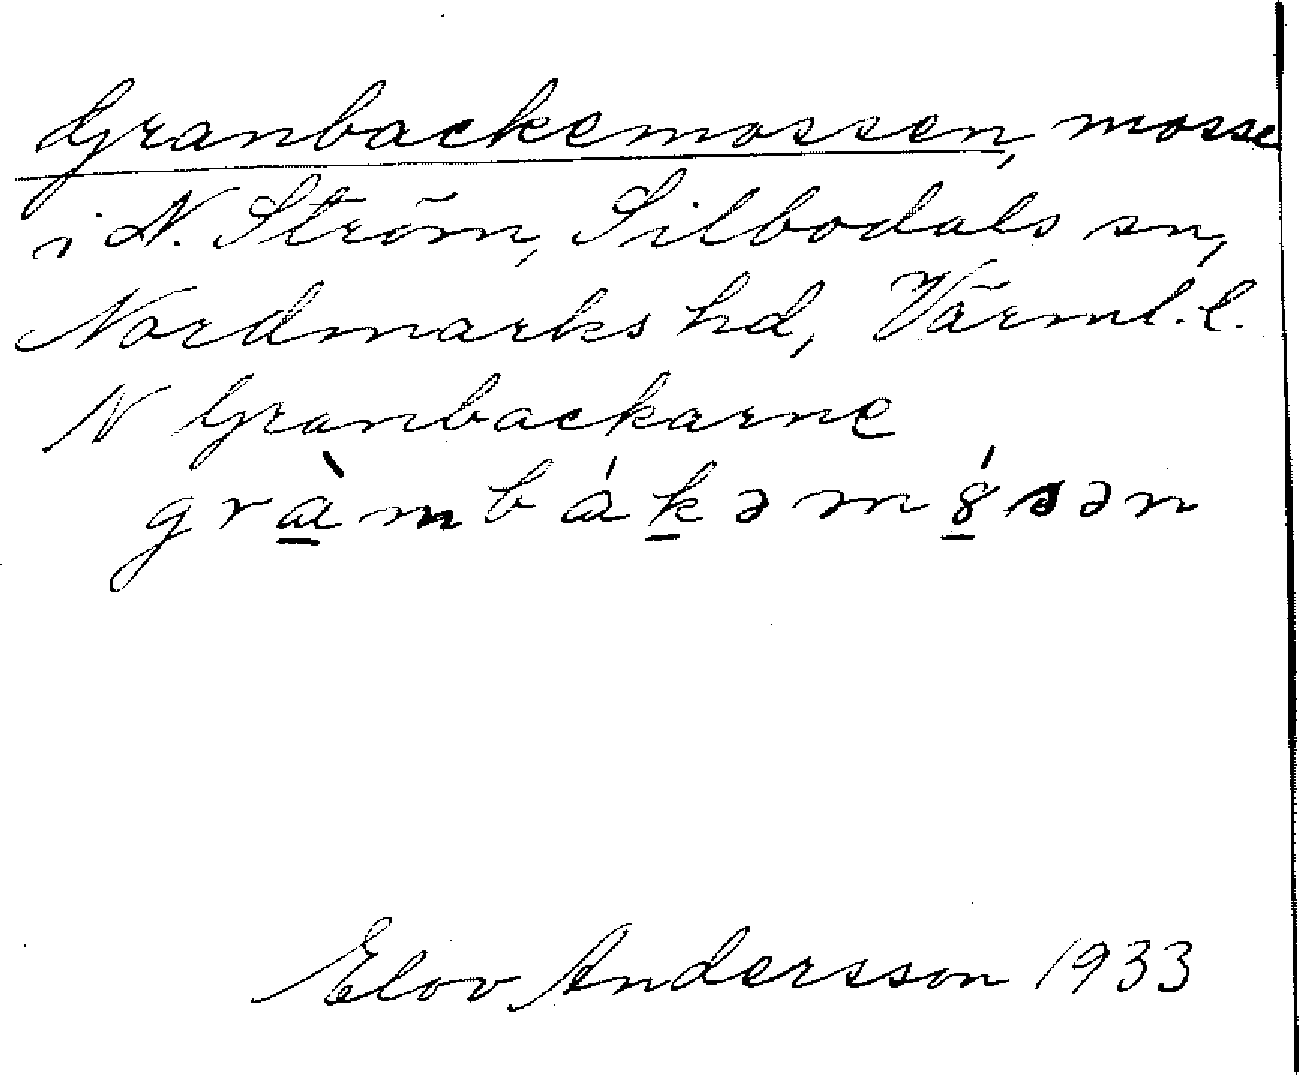 Granbackemossen, mosse
i N. Ström, Silbodals sn,
Nordmarks hd, Värml. l.
N Granbackarne
gràmbákəmȣ́sən
Elov Andersson 1933